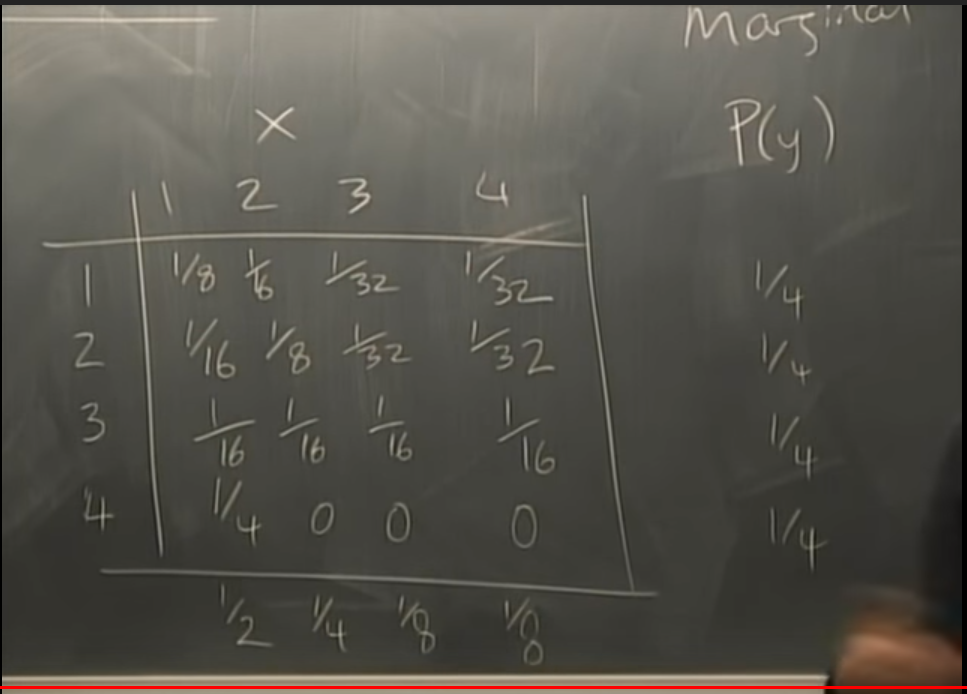 Marginal
X P(y)
1 2 3 4
1 1/8 1/16 1/32 1/32 1/4
2 1/16 1/8 1/32 1/32 1/4
3 1/16 1/16 1/16 1/16 1/4
4 1/4 0 0 0 1/4
1/2 1/4 1/8 1/8